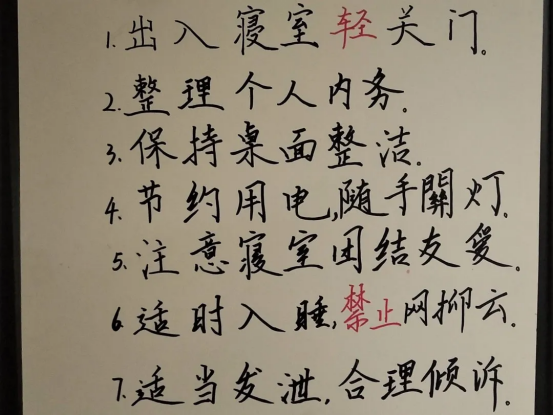 1.出入寝室轻关门。
2.整理个人内务。
3.保持桌面整洁.
4.节约用电,随手關灯.
5.注意寝室团结友爱.
6.适时入睡,禁止网抑云.
7.适当发泄,合理倾诉.